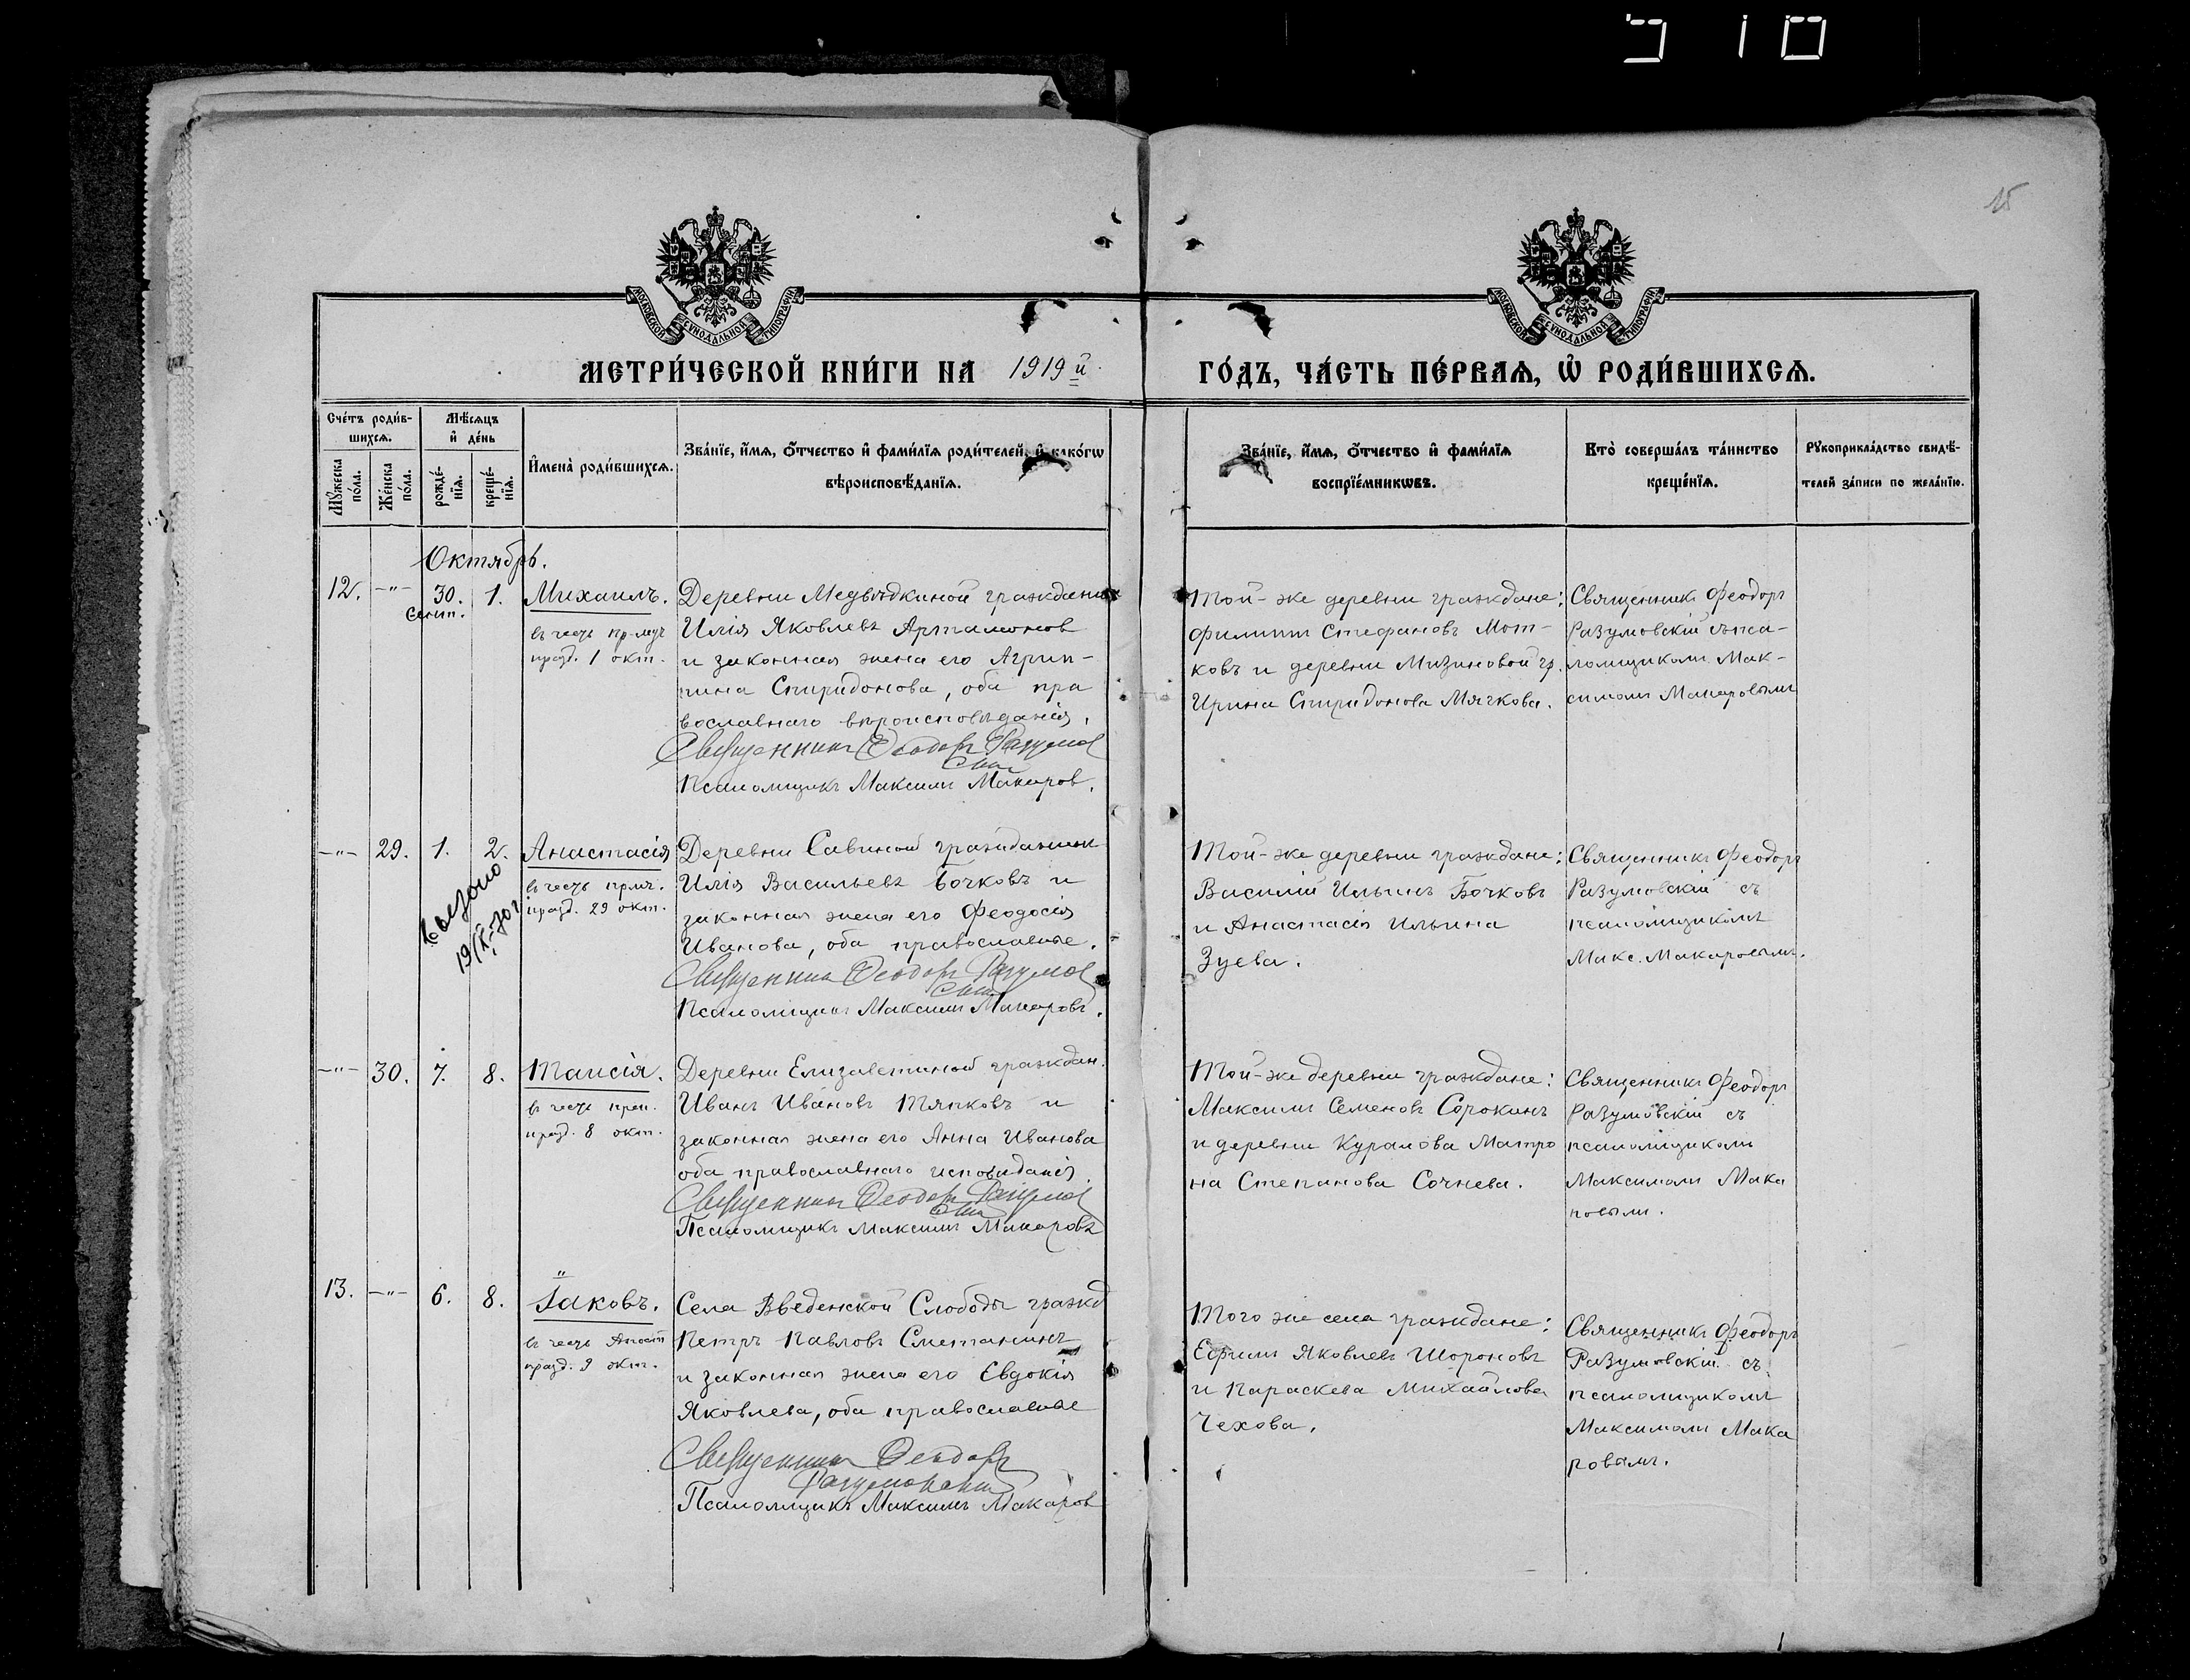 15
МОСКОВСКОЙ СѴНОДАЛЬНОЙ ТИПОГРАФІИ
МОСКОВСКОЙ СѴНОДАЛЬНОЙ ТИПОГРАФІИ
МЕТРИ́ЧЕСКОЙ КНИ́ГИ НА 1919 й
ГО́ДЪ, ЧА́СТЬ ПЕ́РВАЯ, Ѡ҆ РОДИ́ВШИХСЯ.
Сче́тъ роди́в-
шихся.
Мѣ́сяцъ
и҆ де́нь
Мꙋ́жеска по́ла.
Же́нска по́ла.
рожде́-
нїя.
креще́-
нїя.
И҆мена̀ роди́вшихся.
Зва́нїе, и҆́мя, ѻ҆́тчество и҆ фами́лїя роди́телей, и҆ како́гѡ
вѣроисповѣ́данїя.
Зва́нїе, и҆́мя, ѻ҆́тчество и҆ фами́лїя
воспрїе́мникѡвъ.
Кто̀ соверша́лъ та́инство
креще́нїя.
Рꙋкоприкла́дство свидѣ́-
телей за́писи по жела́нїю.
Октябрь.
12. -"- 30. 1. Михаилъ.
Сент.
празд. 1 окт.
Деревни Медвѣдкиной гражданин
Илія Яковлевъ Артамонов
и законная жена его Агрип-
пина Спиридонова, оба пра
вославнаго вѣроисповѣданія.
Священникъ Ѳеодоръ Разумов
скій
Псаломщикъ Максимъ Макаров.
Той-же деревни граждане:
Филиппъ Стефановъ Мот-
ковъ и деревни Мизиновой гр.
Ирина Спиридонова Мячкова.
Священникъ Феодоръ
Разумовскій съ пса-
ломщикомъ Мак-
симомъ Макаровымъ
-"- 29. 1. 2. Анастасія
въ честь
празд. 29 окт.
19/X-70г
Деревни Савиной гражданин
Илія Васильевъ Бочковъ и
законная жена его Феодосія
Иванова, оба православные.
Священникъ Ѳеодоръ Разумов
скій
Псаломщикъ Максимъ Макаровъ.
Той-же деревни граждане:
Василій Ильинъ Бочковъ
и Анастасія Ильина
Зуева.
Священникъ Феодоръ
Разумовскій съ
псаломщикомъ
Макс. Макаровымъ.
-"- 30. 7. 8. Таисія.
въ честь преп.
празд. 8 окт.
Деревни Елизаветиной граждан.
Иванъ Ивановъ Тяпковъ и
законная жена его Анна Иванова
оба православнаго исповѣданія.
Священникъ Ѳеодоръ Разумов
скій
Псаломщикъ Максимъ Макаровъ
Той-же деревни граждане:
Максимъ Семеновъ Сорокинъ
и деревни Куралова Матро
на Степанова Сочнева.
Священникъ Феодоръ
Разумовскій съ
псаломщикомъ
Максимомъ Мака
ровымъ.
13. -"- 6. 8. Іаковъ.
въ честь Апост
празд. 9 окт.
Села Введенской Слободы гражд
Петръ Павловъ Сметанинъ
и законная жена его Евдокія
Яковлева, оба православные
Священникъ Ѳеодоръ
Разумовскій
Псаломщикъ Максимъ Макаров
Того же села граждане:
Ефимъ Яковлевъ Шороновъ
и Параскева Михайлова
Чехова.
Священникъ Феодоръ
Разумовскій съ
псаломщикомъ
Максимомъ Мака
ровымъ.